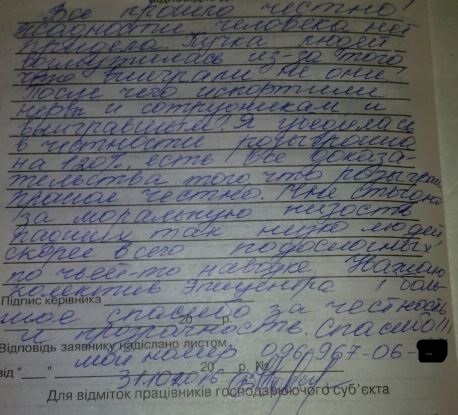 Все прошло честно!
Жадности человека нет
предела. Кучка людей
возмутилась из-за того
что выиграли не они!
После чего испортили
нервы и сотрудникам и
выигравшим! Я убедилась
в честности розыгрыша
на 120% есть все доказа-
тельства того что розыгрыш
прошел честно. Мне стыдно
за моральную низость
падших так низко людей,
скорее всего подосланных
по чьей-то наводке. Уважаю
коллектив Эпицентра! Боль-
Підпис керівника
шое спасибо за честность
20 р.
и прозрачность. Спасибо!!!
Відповідь заявнику надіслано листом
мой номер 096-967-06-
від "___" 20 р. №
31.10.2016
Для відміток працівників господарюючого суб'єкта